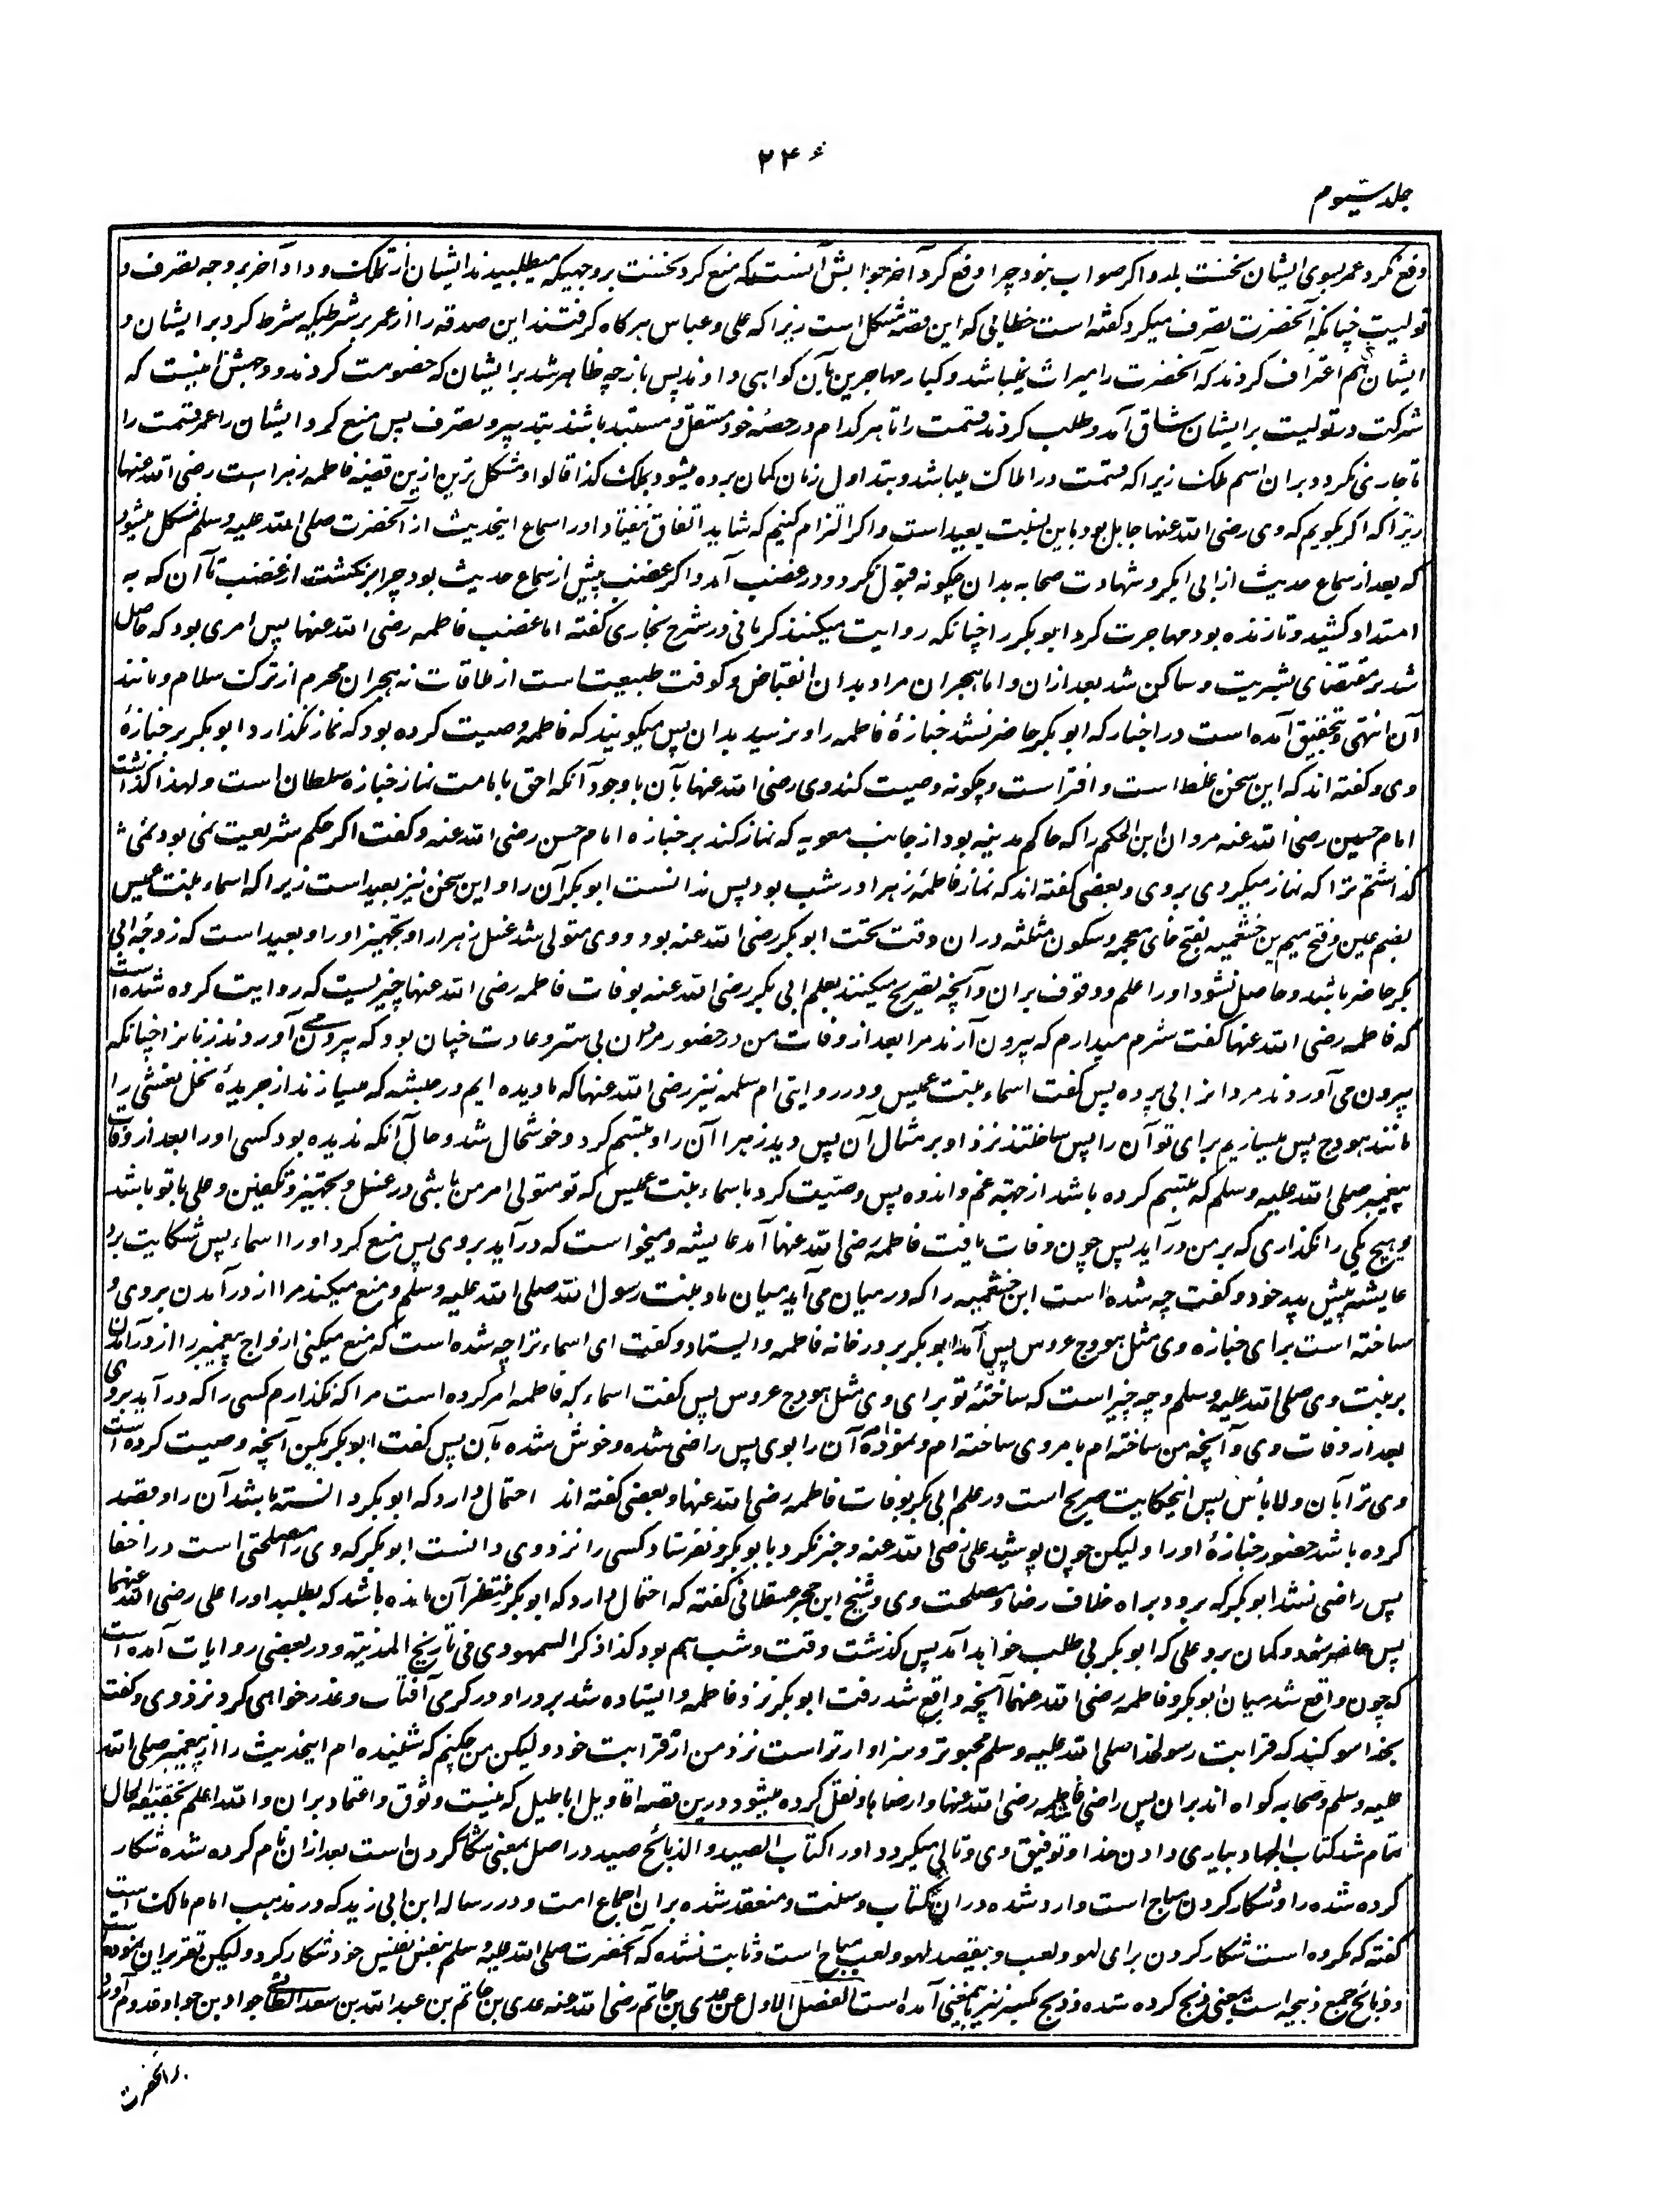 ۲۴۰
جلد سیوم
دفع نکرد عمر بسوی ایشان نخست بار و اگر صواب نبود چرا دفع کرد آخر جوابش آنست که منع کرد نخست بر وجهیکه میطلبیدند ایشان از تملک و داد آخر بر وجه تصرف و
تولیت چنانکه آنحضرت تصرف میکرد گفته است خطابی که این قصه مشکل است زیرا که علی و عباس هرگاه گرفتند این صدقه را از عمر بر شرطیکه شرط کرد بر ایشان و
ایشان هم اعتراف کردند که آنحضرت را میراث نمیباشد و کبار مهاجرین بآن گواهی دادند پس باز چه ظاهر شد بر ایشان که خصومت کردند و وجهش اینست که
شرکت در تولیت بر ایشان شاق آمد و طلب کردند قسمت را تا هر کدام در حصهٔ خود مستقل و مستبد باشند بتدبیر و تصرف پس منع کرد ایشان را عمر قسمت را
تا جاری نگردد بران اسم ملک زیرا که قسمت در املاک میباشد و بتداول زمان گمان برده میشود بملک کذا قالوا و مشکل ترین ازین قضیه فاطمه زهرا است رضی الله عنها
زیرا که اگر بگویم که وی رضی الله عنها جاهل بود باین سنت بعید است و اگر التزام کنیم که شاید اتفاق نیفتاد او را سماع اینحدیث از آنحضرت صلی الله علیه وسلم مشکل میشود
که بعد از سماع حدیث از ابی بکر و شهادت صحابه بدان چگونه قبول نکرد و در غضب آمد و اگر غضب پیش از سماع حدیث بود چرا برنگشت از غضب تا آن که به
امتداد کشید و تا زنده بود مهاجرت کرد ابو بکر را چنانکه روایت میکنند کرمانی در شرح بخاری گفته اما غضب فاطمه رضی الله عنها پس امری بود که حاصل
شد بر مقتضای بشریت و ساکن شد بعد ازان و اما هجران مراد بدان انقباض و کوفت طبیعت است از ملاقات نه هجران محرم از ترک سلام و مانند
آن انتهی و تحقیق آمده است در اخبار که ابو بکر حاضر نشد جنازهٔ فاطمه را و نرسید بدان پس میگویند که فاطمه وصیت کرده بود که نماز نگذارد ابو بکر بر جنازهٔ
وی و گفته اند که این سخن غلط است و افترا است و چگونه وصیت کند وی رضی الله عنها بآن با وجود آنکه احق بامامت نماز جنازه سلطان است و لهذا گذاشت
امام حسین رضی الله عنه مروان ابن الحکم را که حاکم مدینه بود از جانب معویه که نماز کند بر جنازه امام حسن رضی الله عنه و گفت اگر حکم شریعت نمی بود نمی
گذاشتم ترا که نماز میکردی بر وی و بعضی گفته اند که نماز فاطمهٔ زهرا در شب بود پس ندانست ابو بکر آن را و این سخن نیز بعید است زیرا که اسماء بنت عمیس
بضم عین و فتح میم بن خثعمیه بفتح خای معجمه و سکون مثلثه دران وقت تحت ابو بکر رضی الله عنه بود و وی متولی شد غسل زهرا را و تجهیز او را و بعید است که زوجهٔ ابی
بکر حاضر باشد و حاصل نشود او را علم و وقوف بران و آنچه تصریح میکنند بعلم ابی بکر رضی الله عنه بوفات فاطمه رضی الله عنها چیزیست که روایت کرده شده است
که فاطمه رضی الله عنها گفت شرم میدارم که بیرون آرند مرا بعد از وفات من در حضور مردان بی ستر و عادت چنان بود که بیرون می آوردند زنانرا چنانکه
بیرون می آوردند مردانرا بی پرده پس گفت اسماء بنت عمیس و در روایتی ام سلمه نیز رضی الله عنها که ما دیده ایم در حبشه که میسازند از جریدهٔ نخل نعشی را
مانند هودج پس میسازیم برای تو آن را پس ساختند نزد او بر مثال آن پس دید زهرا آن را و تبسم کرد و خوشحال شد و حال آنکه ندیده بود کسی او را بعد از وفات
پیغمبر صلی الله علیه وسلم که تبسم کرده باشد از جهة غم و اندوه پس وصیت کرد باسماء بنت عمیس که تو متولی امر من باشی در غسل و تجهیز و تکفین و علی با تو باشد
و هیچ یکی را نگذاری که بر من درآید پس چون وفات یافت فاطمه رضی الله عنها آمد عایشه و میخواست که درآید بر وی پس منع کرد او را اسماء پس شکایت برد
عایشه پیش پدر خود و گفت چه شده است این خثعمیه را که در میان می آید میان ما و بنت رسول الله صلی الله علیه وسلم و منع میکند مرا از در آمدن بر وی و
ساخته است برای جنازه وی مثل هودج عروس پس آمد ابو بکر بر در خانه فاطمه و ایستاد و گفت ای اسماء ترا چه شده است که منع میکنی ازواج پیغمبر را از در آمدن
بر بنت وی صلی الله علیه وسلم و چه چیز است که ساختهٔ تو برای وی مثل هودج عروس پس گفت اسماء که فاطمه امر کرده است مرا که نگذارم کسی را که درآید بر وی
بعد از وفات وی و آنچه من ساخته ام بامر وی ساخته ام و نموده آن را بوی پس راضی شده و خوش شده بآن پس گفت ابو بکر بکن آنچه وصیت کرده است
وی ترا بآن و لا بأس پس اینحکایت صریح است در علم ابی بکر بوفات فاطمه رضی الله عنها و بعضی گفته اند احتمال دارد که ابو بکر دانسته باشد آن را و قصد
کرده باشد حضور جنازهٔ او را و لیکن چون پوشید علی رضی الله عنه و خبر نکرد بابو بکر و نفرستاد کسی را نزد وی دانست ابو بکر که وی را مصلحتی است در اخفا
پس راضی نشد ابو بکر که برود بر او خلاف رضا و مصلحت وی و شیخ ابن حجر عسقلانی گفته که احتمال دارد که ابو بکر منتظر آن مانده باشد که بطلبد او را علی رضی الله عنهما
پس حاضر شود و گمان برد علی که ابو بکر بی طلب خواهد آمد پس گذشت وقت و شب هم بود کذا ذکر السمهودی فی تاریخ المدینة و در بعضی روایات آمده است
که چون واقع شد میان ابو بکر و فاطمه رضی الله عنهما آنچه واقع شد رفت ابو بکر نزد فاطمه و ایستاده شد بر در او در گرمی آفتاب و عذر خواهی کرد نزد وی و گفت
بخدا سوگند که قرابت رسولخدا صلی الله علیه وسلم محبوبتر و سزاوارتر است نزد من از قرابت خود و لیکن من چکنم که شنیده ام اینحدیث را از پیغمبر صلی الله
علیه وسلم و صحابه گواه اند بران پس راضی شد فاطمه رضی الله عنها و ارضاها و نقل کرده میشود درین قصه اقاویل اباطیل که نیست وثوق و اعتماد بران و الله اعلم بحقیقة الحال
تمام شد کتاب الجهاد بیاری دادن خدا و توفیق وی و تالی میگردد او را کتاب الصید و الذبائح صید در اصل بمعنی شکار کردن است بعد ازان نام کرده شده شکار
کرده شده را و شکار کردن مباح است وارد شده دران کتاب و سنت و منعقد شده بران اجماع امت و در رساله ابن ابی زید که در مذهب امام مالک است
گفته که مکروه است شکار کردن برای لهو و لعب و بیقصد لهو و لعب مباح است و ثابت نشده که آنحضرت صلی الله علیه وسلم بنفس نفیس خود شکار کرد و لیکن تقریر آن نموده
و ذبائح جمع ذبیحه است بمعنی ذبح کرده شده و ذبح بکسر نیز باینمعنی آمده است الفصل الاول عن عدی بن حاتم رضی الله عنه عدی بن حاتم بن عبد الله بن سعد الطائی جواد بن جواد قدوم آورد
بر آنحضرت